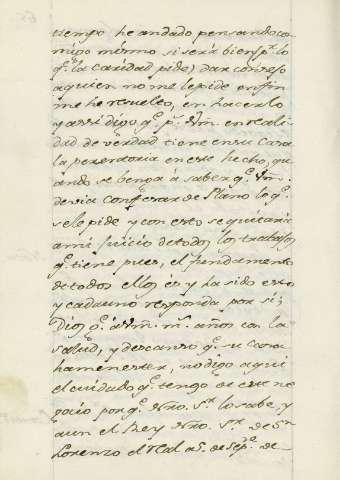 tiempo he andado pensando co-
migo mismo si será bien pr. lo
q. la caridad pide dar consejo
a quien no me le pide en fin
me he resuelto, en hacerlo
y assi digo q. pr. Vm. en reali
dad de verdad tiene en su casa
la perentoria en este hecho, qu
ando se benga à saber q. Vm.
devia confesar de Plano lo q.
se le pide y con esto se quitaria
à mi juicio de todos los trabajos
q. tiene pues, el fundamento
de todos ellos es y ha sido esto
y cada uno responda por si;
Dios g. à Vm. ms. años con la
salud, y descanso q. su casa
ha menester, no digo aqui
el cuidado q. tengo de este ne
gocio por q. nro. Sr. lo sabe, y
aun el Rey nro. Sr. de Sn.
Lorenzo el Real a 5. de Sepre. de